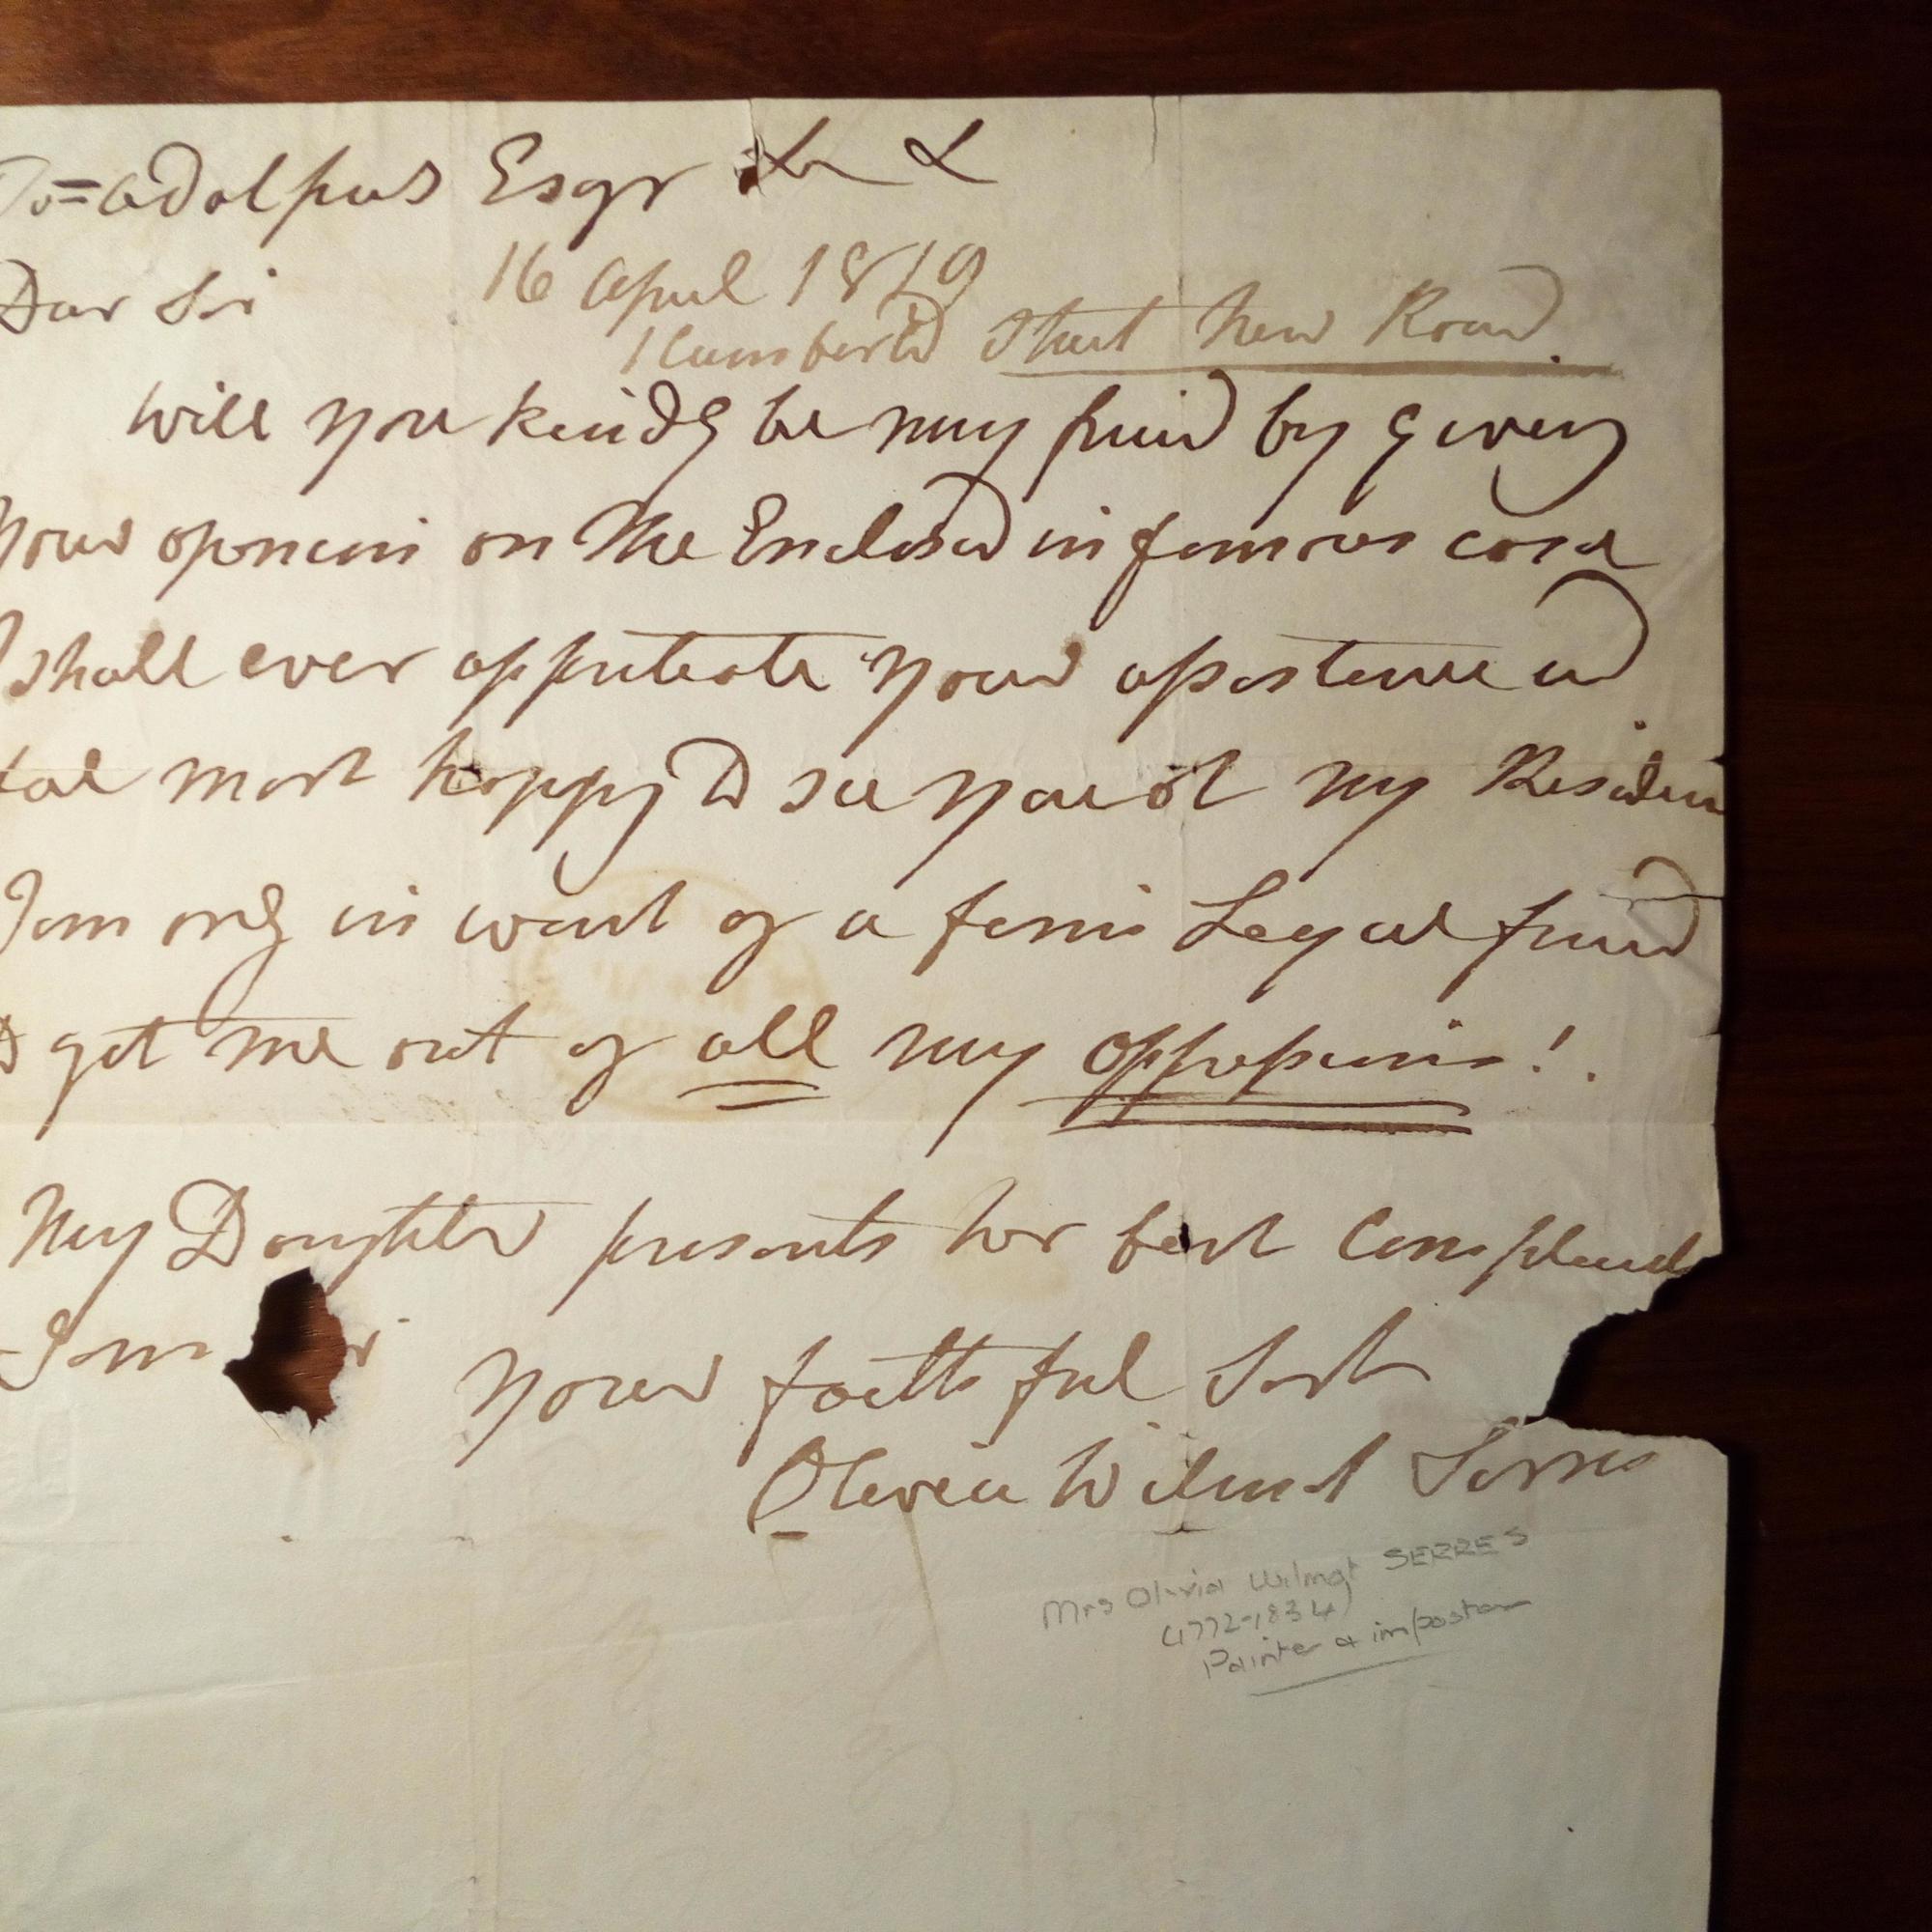 To = Adolphus Esqr &c &
16 April 1819
Dear Sir
1 Cumberld Street New Road.
Will you kindly be my friend by giving
your opinion on the Enclosed infamous case
I shall ever appreteate your assistance and
be most happy to see you at my Residen
I am only in want of a firm Legal friend
to get me out of all my oppressions!.
My Daughter presents her best Compliments
I am
your faithful Sert
Olivia Wilmot Serres
Mrs Olivia Wilmot SERRES
(1772-1834)
Painter & impostor